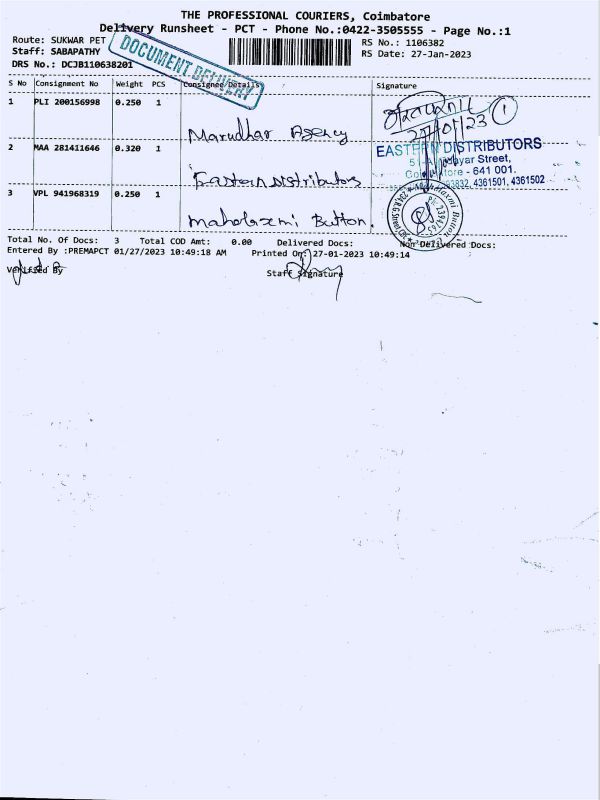 THE PROFESSIONAL COURIERS, Coimbatore
Delivery Runsheet - PCT - Phone No.:0422-3505555 - Page No.:1
Route: SUKWAR PET
RS No.: 1106382
Staff: SABAPATHY
RS Date: 27-Jan-2023
DRS No.: DCJB110638201
DOCUMENT DELIVERY
S No Consignment No Weight PCS Consignee Details Signature
1 PLI 200156998 0.250 1
Marudhar Agency
27/01/23
1
2 MAA 281411646 0.320 1
Eastern Distributors
EASTERN DISTRIBUTORS
Street,
Coimbatore - 641 001.
4361501, 4361502
3 VPL 941968319 0.250 1
Mahalaxmi Button.
Mahalaxmi Button
Total No. Of Docs: 3 Total COD Amt: 0.00 Delivered Docs: Non Delivered Docs:
Entered By :PREMAPCT 01/27/2023 10:49:18 AM Printed On: 27-01-2023 10:49:14
Verified By Staff Signature